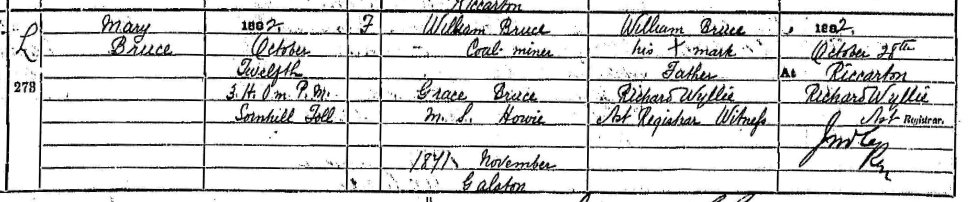 Riccarton
L
278
Mary
Bruce
1882
October
Twelfth
3. H. 0 m. P.M.
Sornhill Toll
F
William Bruce
Coal miner
Grace Bruce
M. S. Howie
1871 November
Galston
William Bruce
his X mark
Father
Richard Wyllie
Asst Registrar Witness
1882
October 28th
At Riccarton
Richard Wyllie
Asst Registrar.